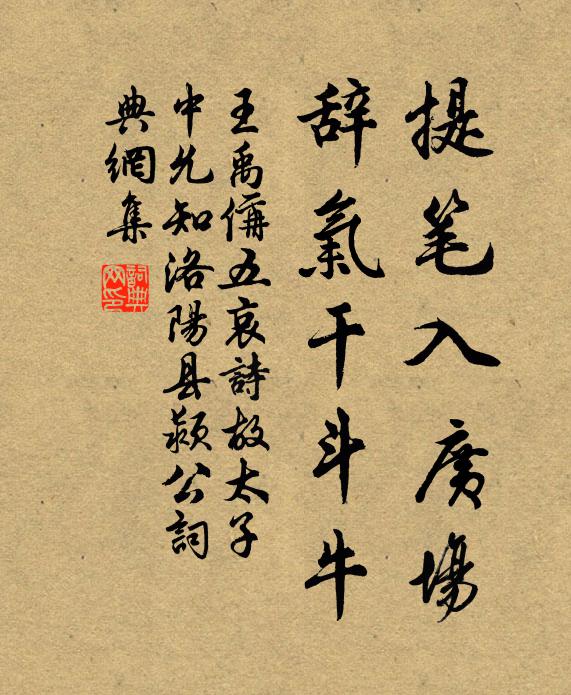 提笔入廣場
辞氣干斗牛
王禹偁五哀詩故太子
中允知洛陽县颍公詞
典網集
詞典网印